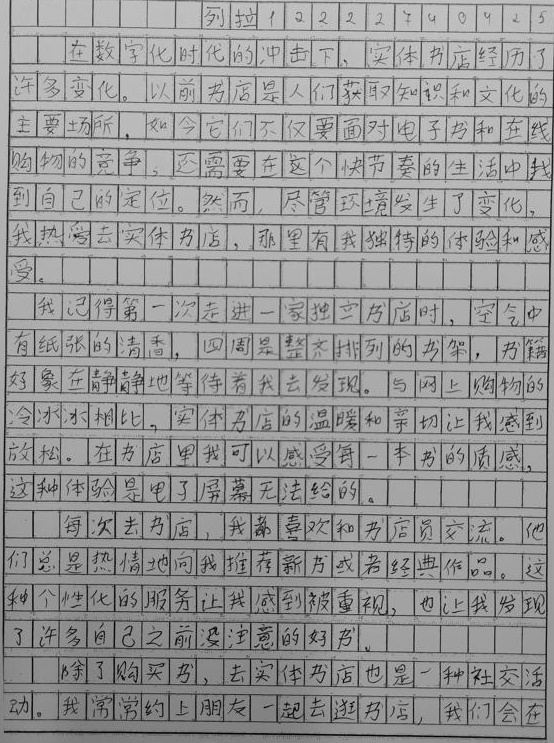 列拉1222740425
在数字化时代的冲击下，实体书店经历了
许多变化。以前书店是人们获取知识和文化的
主要场所，如今它们不仅要面对电子书和在线
购物的竞争，还需要在这个快节奏的生活中找
到自己的定位。然而，尽管环境发生了变化，
我热爱去实体书店，那里有我独特的体验和感
受。
我记得第一次走进一家独立书店时，空气中
有纸张的清香，四周是整齐排列的书架，书籍
好象在静静地等待着我去发现。与网上购物的
冷冰冰相比，实体书店的温暖和亲切让我感到
放松。在书店里我可以感受每一本书的质感，
这种体验是电子屏幕无法给的。
每次去书店，我都喜欢和书店员交流。他
们总是热情地向我推荐新书或者经典作品。这
种个性化的服务让我感到被重视，也让我发现
了许多自己之前没注意的好书。
除了购买书，去实体书店也是一种社交活
动。我常常约上朋友一起去逛书店，我们会在